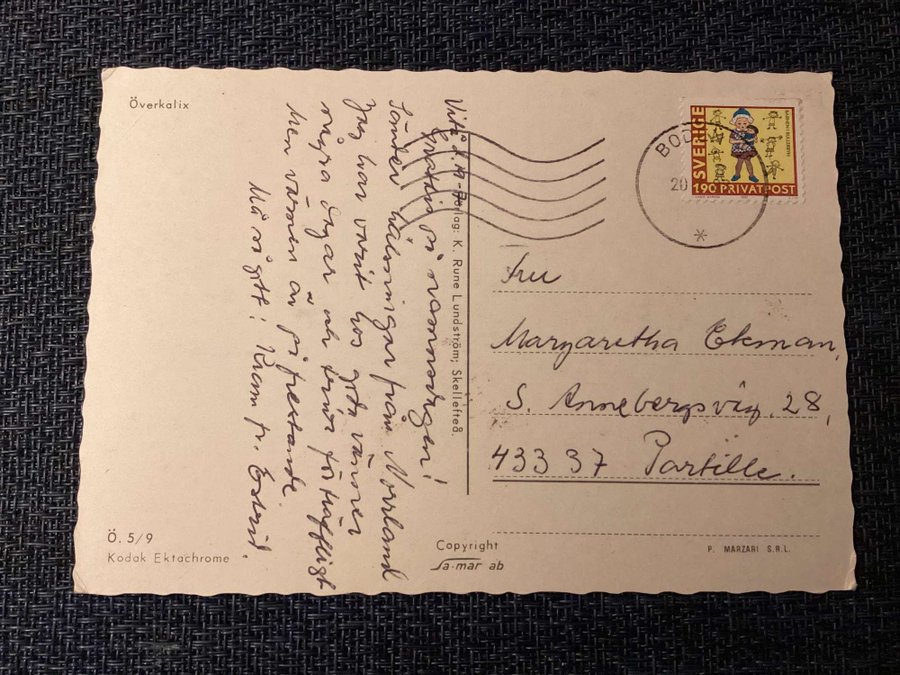 Överkalix
Grattis på namnsdagen!
Sänder hälsningar från Norrland
Jag har varit hos goda vänner
några dagar och trivs förträffligt
Men värmen är påfrestande
Må så gott! Kram fr. Estrid.
Ö. 5/9
Kodak Ektachrome
Förlag: K. Rune Lundström; Skellefteå.
Copyright
Sa-mar ab
SVERIGE
190 PRIVATPOST
BOD
20
Fru
Margaretha Ekman,
S. Annebergsväg. 28,
433 37 Partille.
P. MARZARI S.R.L.